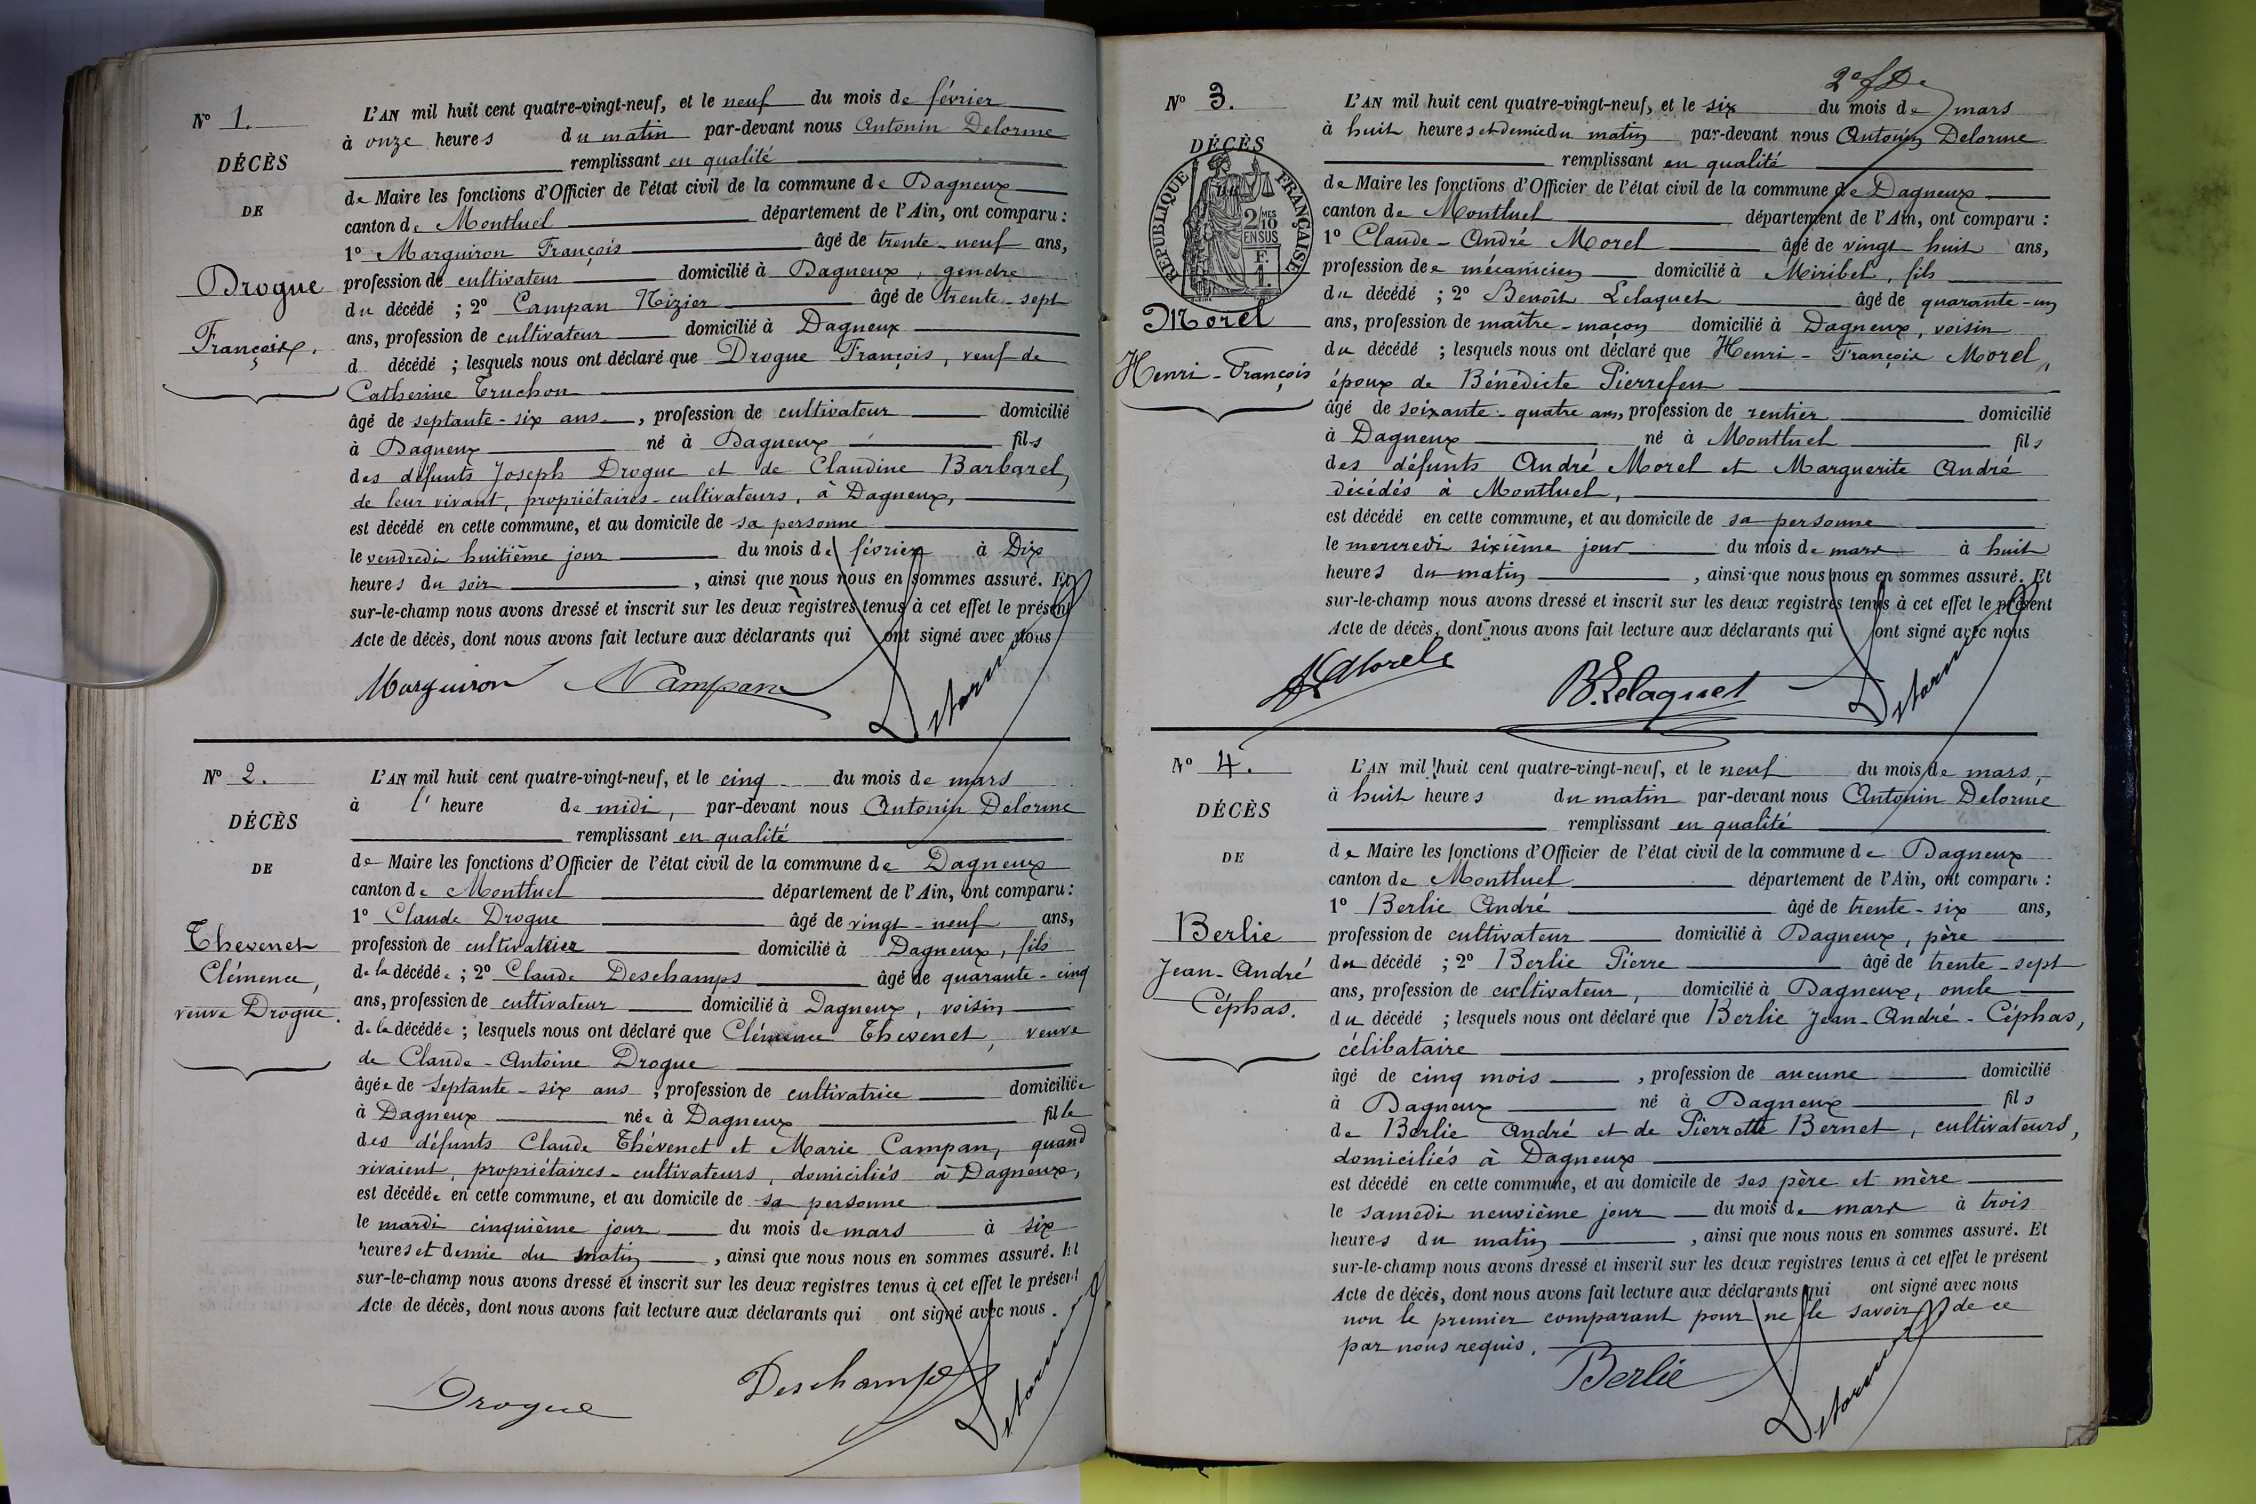 N° 1.
DÉCÈS
DE
Drogue
François.
L'AN mil huit cent quatre-vingt-neuf, et le neuf du mois de février
à onze heures du matin par-devant nous Antonin Delorme
remplissant en qualité
de Maire les fonctions d'Officier de l'état civil de la commune de Dagneux
canton de Montluel département de l'Ain, ont comparu :
1° Marguiron François âgé de trente-neuf ans,
profession de cultivateur domicilié à Dagneux, gendre
du décédé ; 2° Campan Nizier âgé de trente-sept
ans, profession de cultivateur domicilié à Dagneux
d décédé ; lesquels nous ont déclaré que Drogue François, veuf de
Catherine Truchon
âgé de septante-six ans, profession de cultivateur domicilié
à Dagneux né à Dagneux fils
des défunts Joseph Drogue et de Claudine Barbarel,
de leur vivant, propriétaires-cultivateurs, à Dagneux,
est décédé en cette commune, et au domicile de sa personne
le vendredi huitième jour du mois de février à Dix
heures du soir, ainsi que nous nous en sommes assuré. Et
sur-le-champ nous avons dressé et inscrit sur les deux registres tenus à cet effet le présent
Acte de décès, dont nous avons fait lecture aux déclarants qui ont signé avec nous
Marguiron N Campan Delorme
N° 2.
DÉCÈS
DE
Thevenet
Clémence,
veuve Drogue.
L'AN mil huit cent quatre-vingt-neuf, et le cinq du mois de mars
à l' heure de midi, par-devant nous Antonin Delorme
remplissant en qualité
de Maire les fonctions d'Officier de l'état civil de la commune de Dagneux
canton de Montluel département de l'Ain, ont comparu :
1° Claude Drogue âgé de vingt-neuf ans,
profession de cultivateur domicilié à Dagneux, fils
de la décédée ; 2° Claude Deschamps âgé de quarante-cinq
ans, profession de cultivateur domicilié à Dagneux, voisin
de la décédée ; lesquels nous ont déclaré que Clémence Thevenet, veuve
de Claude-Antoine Drogue
âgée de septante-six ans, profession de cultivatrice domiciliée
à Dagneux née à Dagneux fille
des défunts Claude Thévenet et Marie Campan, quand
vivaient, propriétaires-cultivateurs, domiciliés à Dagneux,
est décédée en cette commune, et au domicile de sa personne
le mardi cinquième jour du mois de mars à six
heures et demie du matin, ainsi que nous nous en sommes assuré. Et
sur-le-champ nous avons dressé et inscrit sur les deux registres tenus à cet effet le présent
Acte de décès, dont nous avons fait lecture aux déclarants qui ont signé avec nous.
Drogue Deschamps Delorme
N° 3.
DÉCÈS
RÉPUBLIQUE FRANÇAISE
2 MES
10
EN SUS
F.
1.
Morel
Henri-François
L'AN mil huit cent quatre-vingt-neuf, et le six du mois de mars
à huit heures et demie du matin par-devant nous Antonin Delorme
remplissant en qualité
de Maire les fonctions d'Officier de l'état civil de la commune de Dagneux
canton de Montluel département de l'Ain, ont comparu :
1° Claude-André Morel âgé de vingt-huit ans,
profession de mécanicien domicilié à Miribel, fils
du décédé ; 2° Benoît Lelaquet âgé de quarante-un
ans, profession de maître-maçon domicilié à Dagneux, voisin
du décédé ; lesquels nous ont déclaré que Henri-François Morel,
époux de Bénédicte Pierrefeu
âgé de soixante-quatre ans, profession de rentier domicilié
à Dagneux né à Montluel fils
des défunts André Morel et Marguerite André
décédés à Montluel,
est décédé en cette commune, et au domicile de sa personne
le mercredi sixième jour du mois de mars à huit
heures du matin, ainsi que nous nous en sommes assuré. Et
sur-le-champ nous avons dressé et inscrit sur les deux registres tenus à cet effet le présent
Acte de décès, dont nous avons fait lecture aux déclarants qui ont signé avec nous
Morel B. Lelaquet Delorme
N° 4.
DÉCÈS
DE
Berlie
Jean-André
Céphas.
L'AN mil huit cent quatre-vingt-neuf, et le neuf du mois de mars,
à huit heures du matin par-devant nous Antonin Delorme
remplissant en qualité
de Maire les fonctions d'Officier de l'état civil de la commune de Dagneux
canton de Montluel département de l'Ain, ont comparu :
1° Berlie André âgé de trente-six ans,
profession de cultivateur domicilié à Dagneux, père
du décédé ; 2° Berlie Pierre âgé de trente-sept
ans, profession de cultivateur, domicilié à Dagneux, oncle
du décédé ; lesquels nous ont déclaré que Berlie Jean-André-Céphas,
célibataire
âgé de cinq mois, profession de aucune domicilié
à Dagneux né à Dagneux fils
de Berlie André et de Pierrette Bernet, cultivateurs,
domiciliés à Dagneux
est décédé en cette commune, et au domicile de ses père et mère
le samedi neuvième jour du mois de mars à trois
heures du matin, ainsi que nous nous en sommes assuré. Et
sur-le-champ nous avons dressé et inscrit sur les deux registres tenus à cet effet le présent
Acte de décès, dont nous avons fait lecture aux déclarants qui ont signé avec nous
non le premier comparant pour ne le savoir de ce
par nous requis.
Berlie Delorme